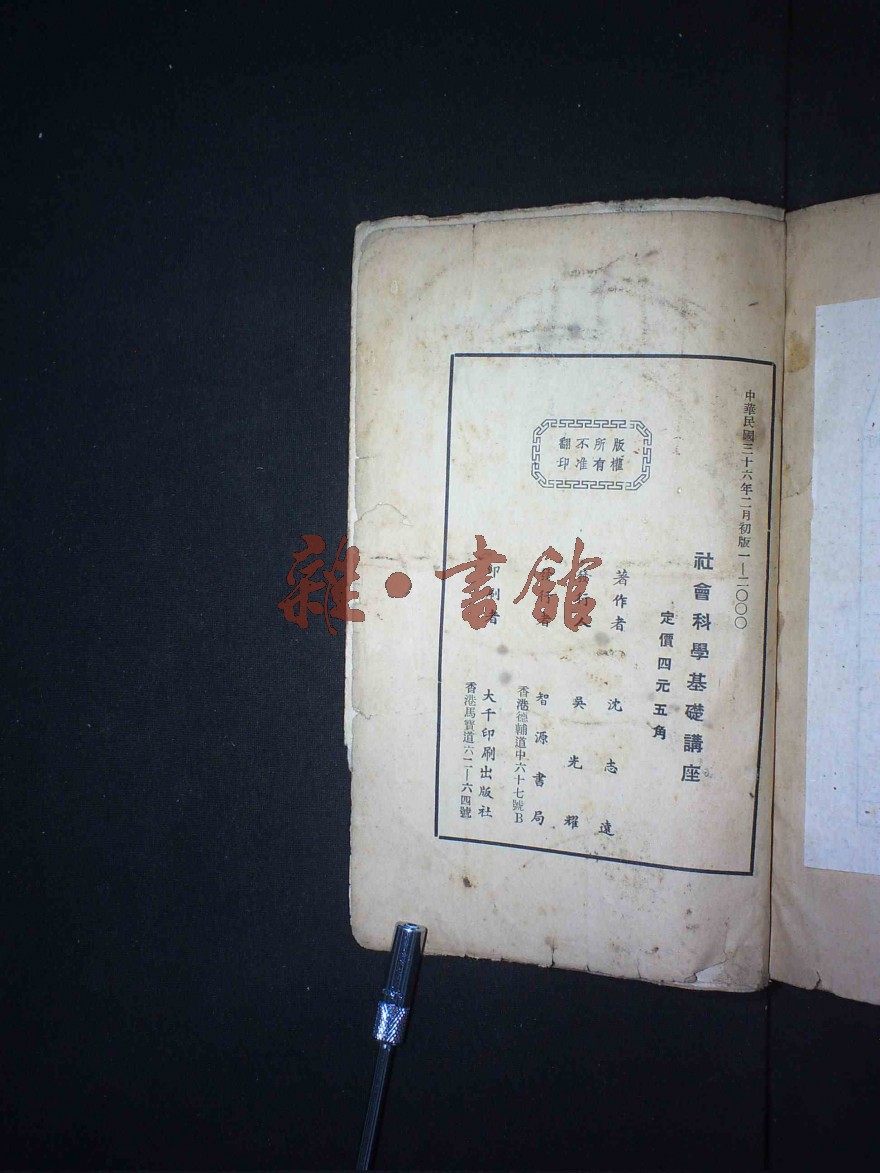 中華民國三十六年二月初版一—二〇〇〇
社會科學基礎講座
定價四元五角
版權所有
不准翻印
著作者 沈志遠
吳光耀
智源書局
香港德輔道中六十七號B
印刷者 大千印刷出版社
香港馬寶道六二—六四號
雜·書館